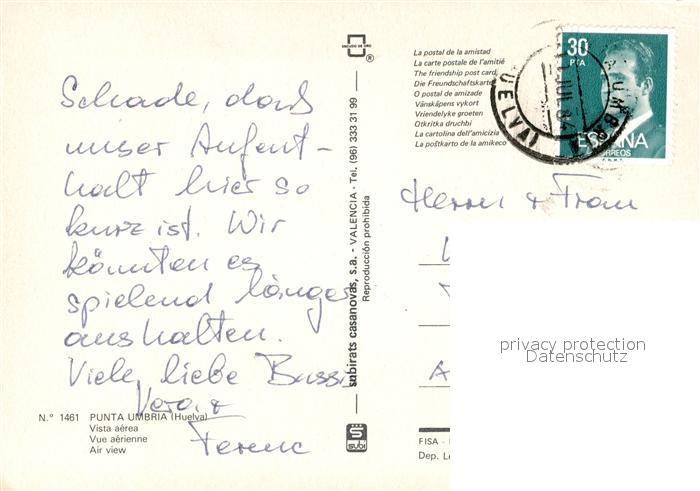 Schade, dass
unser Aufent-
halt hier so
kurz ist. Wir
könnten es
spielend länger
aushalten.
Viele liebe Bussi
Vera &
Ferenc
N.° 1461 PUNTA UMBRIA (Huelva)
Vista aérea
Vue aérienne
Air view
ESCUDO DE ORO
®
subirats casanovas, s.a. - VALENCIA - Tel. (96) 333 31 99
Reproducción prohibida
SUBI
La postal de la amistad
La carte postale de l'amitié
The friendship post card
Die Freundschaftskarte
O postal de amizade
Vänskåpens vykort
Vriendelyke groeten
Otkritka druchbi
La cartolina dell'amicizia
La poštkarto de la amikeco
30
PTA
ESPAÑA
CORREOS
F.N.M.T.
UMBR
JUL 84
(HUELVA)
Herrn & Frau
A
privacy protection
Datenschutz
FISA -
Dep. Le